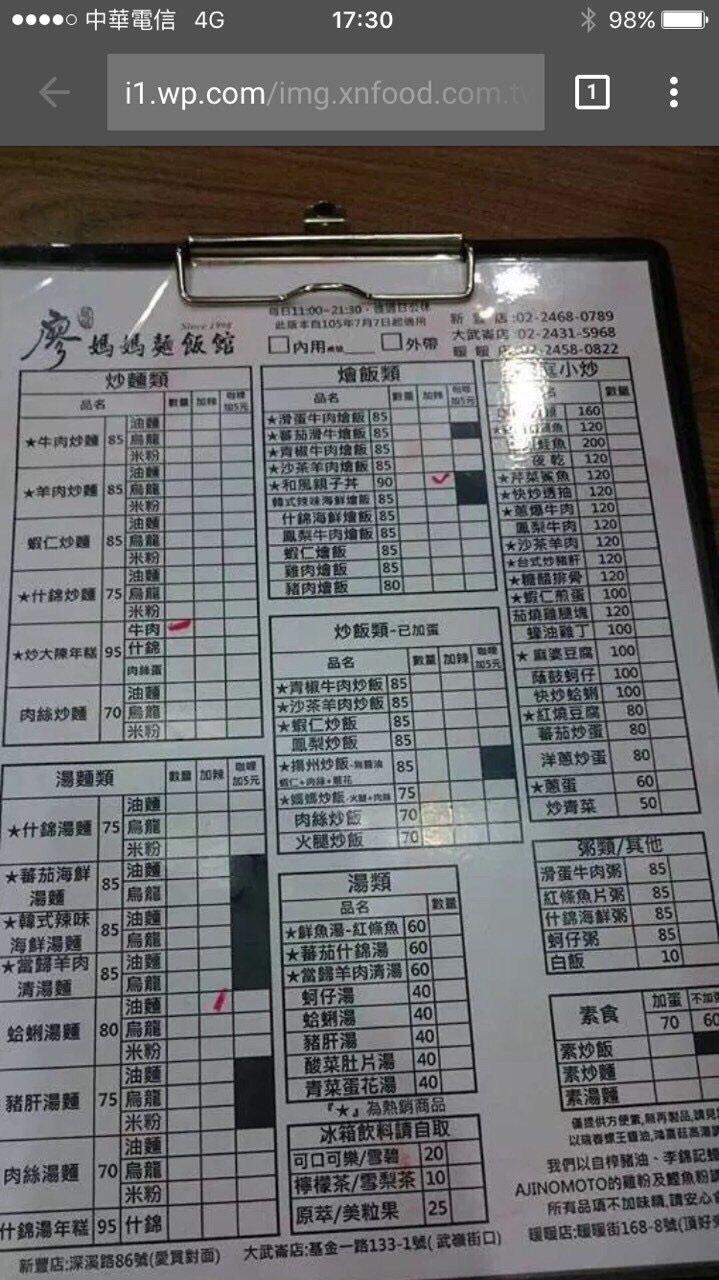 中華電信 4G 17:30 98%
i1.wp.com/img.xnfood.com.tw
1
廖媽媽麵飯館
Since 1998
每日11:00~21:30
此版本自105年7月7日起適用
內用 外帶
新豐店:02-2468-0789
大武崙店:02-2431-5968
暖暖店:02-2458-0822
炒麵類
品名 數量 加辣 咖哩加5元
★牛肉炒麵 85 油麵 烏龍 米粉
★羊肉炒麵 85 油麵 烏龍 米粉
蝦仁炒麵 85 油麵 烏龍 米粉
★什錦炒麵 75 油麵 烏龍 米粉
★炒大陳年糕 95 牛肉 什錦 肉絲蛋
肉絲炒麵 70 油麵 烏龍 米粉
湯麵類 數量 加辣 咖哩加5元
★什錦湯麵 75 油麵 烏龍 米粉
★蕃茄海鮮湯麵 85 油麵 烏龍
★韓式辣味海鮮湯麵 85 油麵 烏龍
★當歸羊肉清湯麵 85 油麵 烏龍
蛤蜊湯麵 80 油麵 烏龍 米粉
豬肝湯麵 75 油麵 烏龍 米粉
肉絲湯麵 70 油麵 烏龍 米粉
什錦湯年糕 95 什錦
燴飯類
品名 數量 加辣 咖哩加5元
★滑蛋牛肉燴飯 85
★蕃茄滑牛燴飯 85
★青椒牛肉燴飯 85
★沙茶羊肉燴飯 85
★和風親子丼 90
韓式辣味海鮮燴飯 85
什錦海鮮燴飯 85
鳳梨牛肉燴飯 85
蝦仁燴飯 85
雞肉燴飯 85
豬肉燴飯 80
炒飯類-已加蛋
品名 數量 加辣 咖哩加5元
★青椒牛肉炒飯 85
★沙茶羊肉炒飯 85
★蝦仁炒飯 85
鳳梨炒飯 85
★揚州炒飯-無醬油 蝦仁+肉絲+蔥花 85
★媽媽炒飯-火腿+肉絲 75
肉絲炒飯 70
火腿炒飯 70
湯類
品名 數量
★鮮魚湯-紅條魚 60
★蕃茄什錦湯 60
★當歸羊肉清湯 60
蚵仔湯 40
蛤蜊湯 40
豬肝湯 40
酸菜肚片湯 40
青菜蛋花湯 40
『★』為熱銷商品
冰箱飲料請自取
可口可樂/雪碧 20
檸檬茶/雪梨茶 10
原萃/美粒果 25
庭小炒
名 數量
160
魚 120
鮭魚 200
夜乾 120
★芹菜鯊魚 120
★快炒透抽 120
★蔥爆牛肉 120
鳳梨牛肉 120
★沙茶羊肉 120
★台式炒豬肝 120
★糖醋排骨 120
★蝦仁煎蛋 100
茄燒雞腿塊 120
蠔油雞丁 100
★麻婆豆腐 100
蔭鼓蚵仔 100
快炒蛤蜊 100
★紅燒豆腐 80
蕃茄炒蛋 80
洋蔥炒蛋 80
★蔥蛋 60
炒青菜 50
粥類/其他
滑蛋牛肉粥 85
紅條魚片粥 85
什錦海鮮粥 85
蚵仔粥 85
白飯 10
素食 加蛋 70 不加 60
素炒飯
素炒麵
素湯麵
僅提供方便素,無再製品,請見
以瑞春螺王醬油,鴻喜菇高湯
我們以自榨豬油、李錦記
AJINOMOTO的雞粉及鰹魚粉
所有品項不加味精,請安心
新豐店:深溪路86號(愛買對面)
大武崙店:基金一路133-1號(武嶺街口)
暖暖店:暖暖街168-8號(頂好